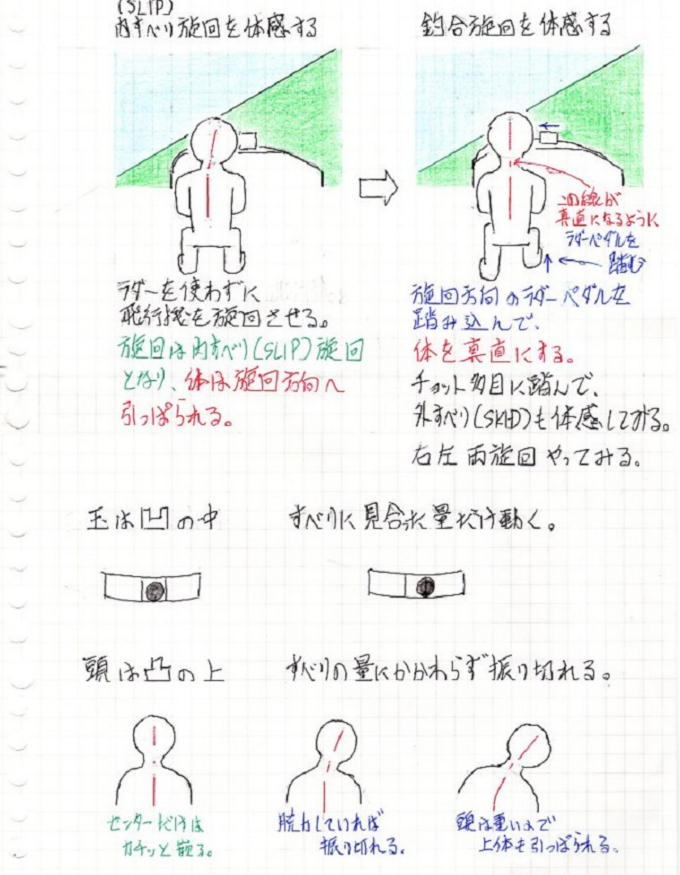 (SLIP)
内すべり旋回を体感する
釣合旋回を体感する
この線が
真直になるように
ラダーペダルを
踏む
ラダーを使わずに
飛行機を旋回させる。
旋回は内すべり(SLIP)旋回
となり、体は旋回方向へ
引っぱられる。
旋回方向のラダーペダルを
踏み込んで、
体を真直にする。
チョット多目に踏んで、
外すべり(SKID)も体感してみる。
右左両旋回やってみる。
玉は凹の中
すべりに見合った量だけ動く。
頭は凸の上
すべりの量にかかわらず振り切れる。
センターだけは
カチッと載る。
脱力していれば
振り切れる。
頭は重いので
上体も引っぱられる。